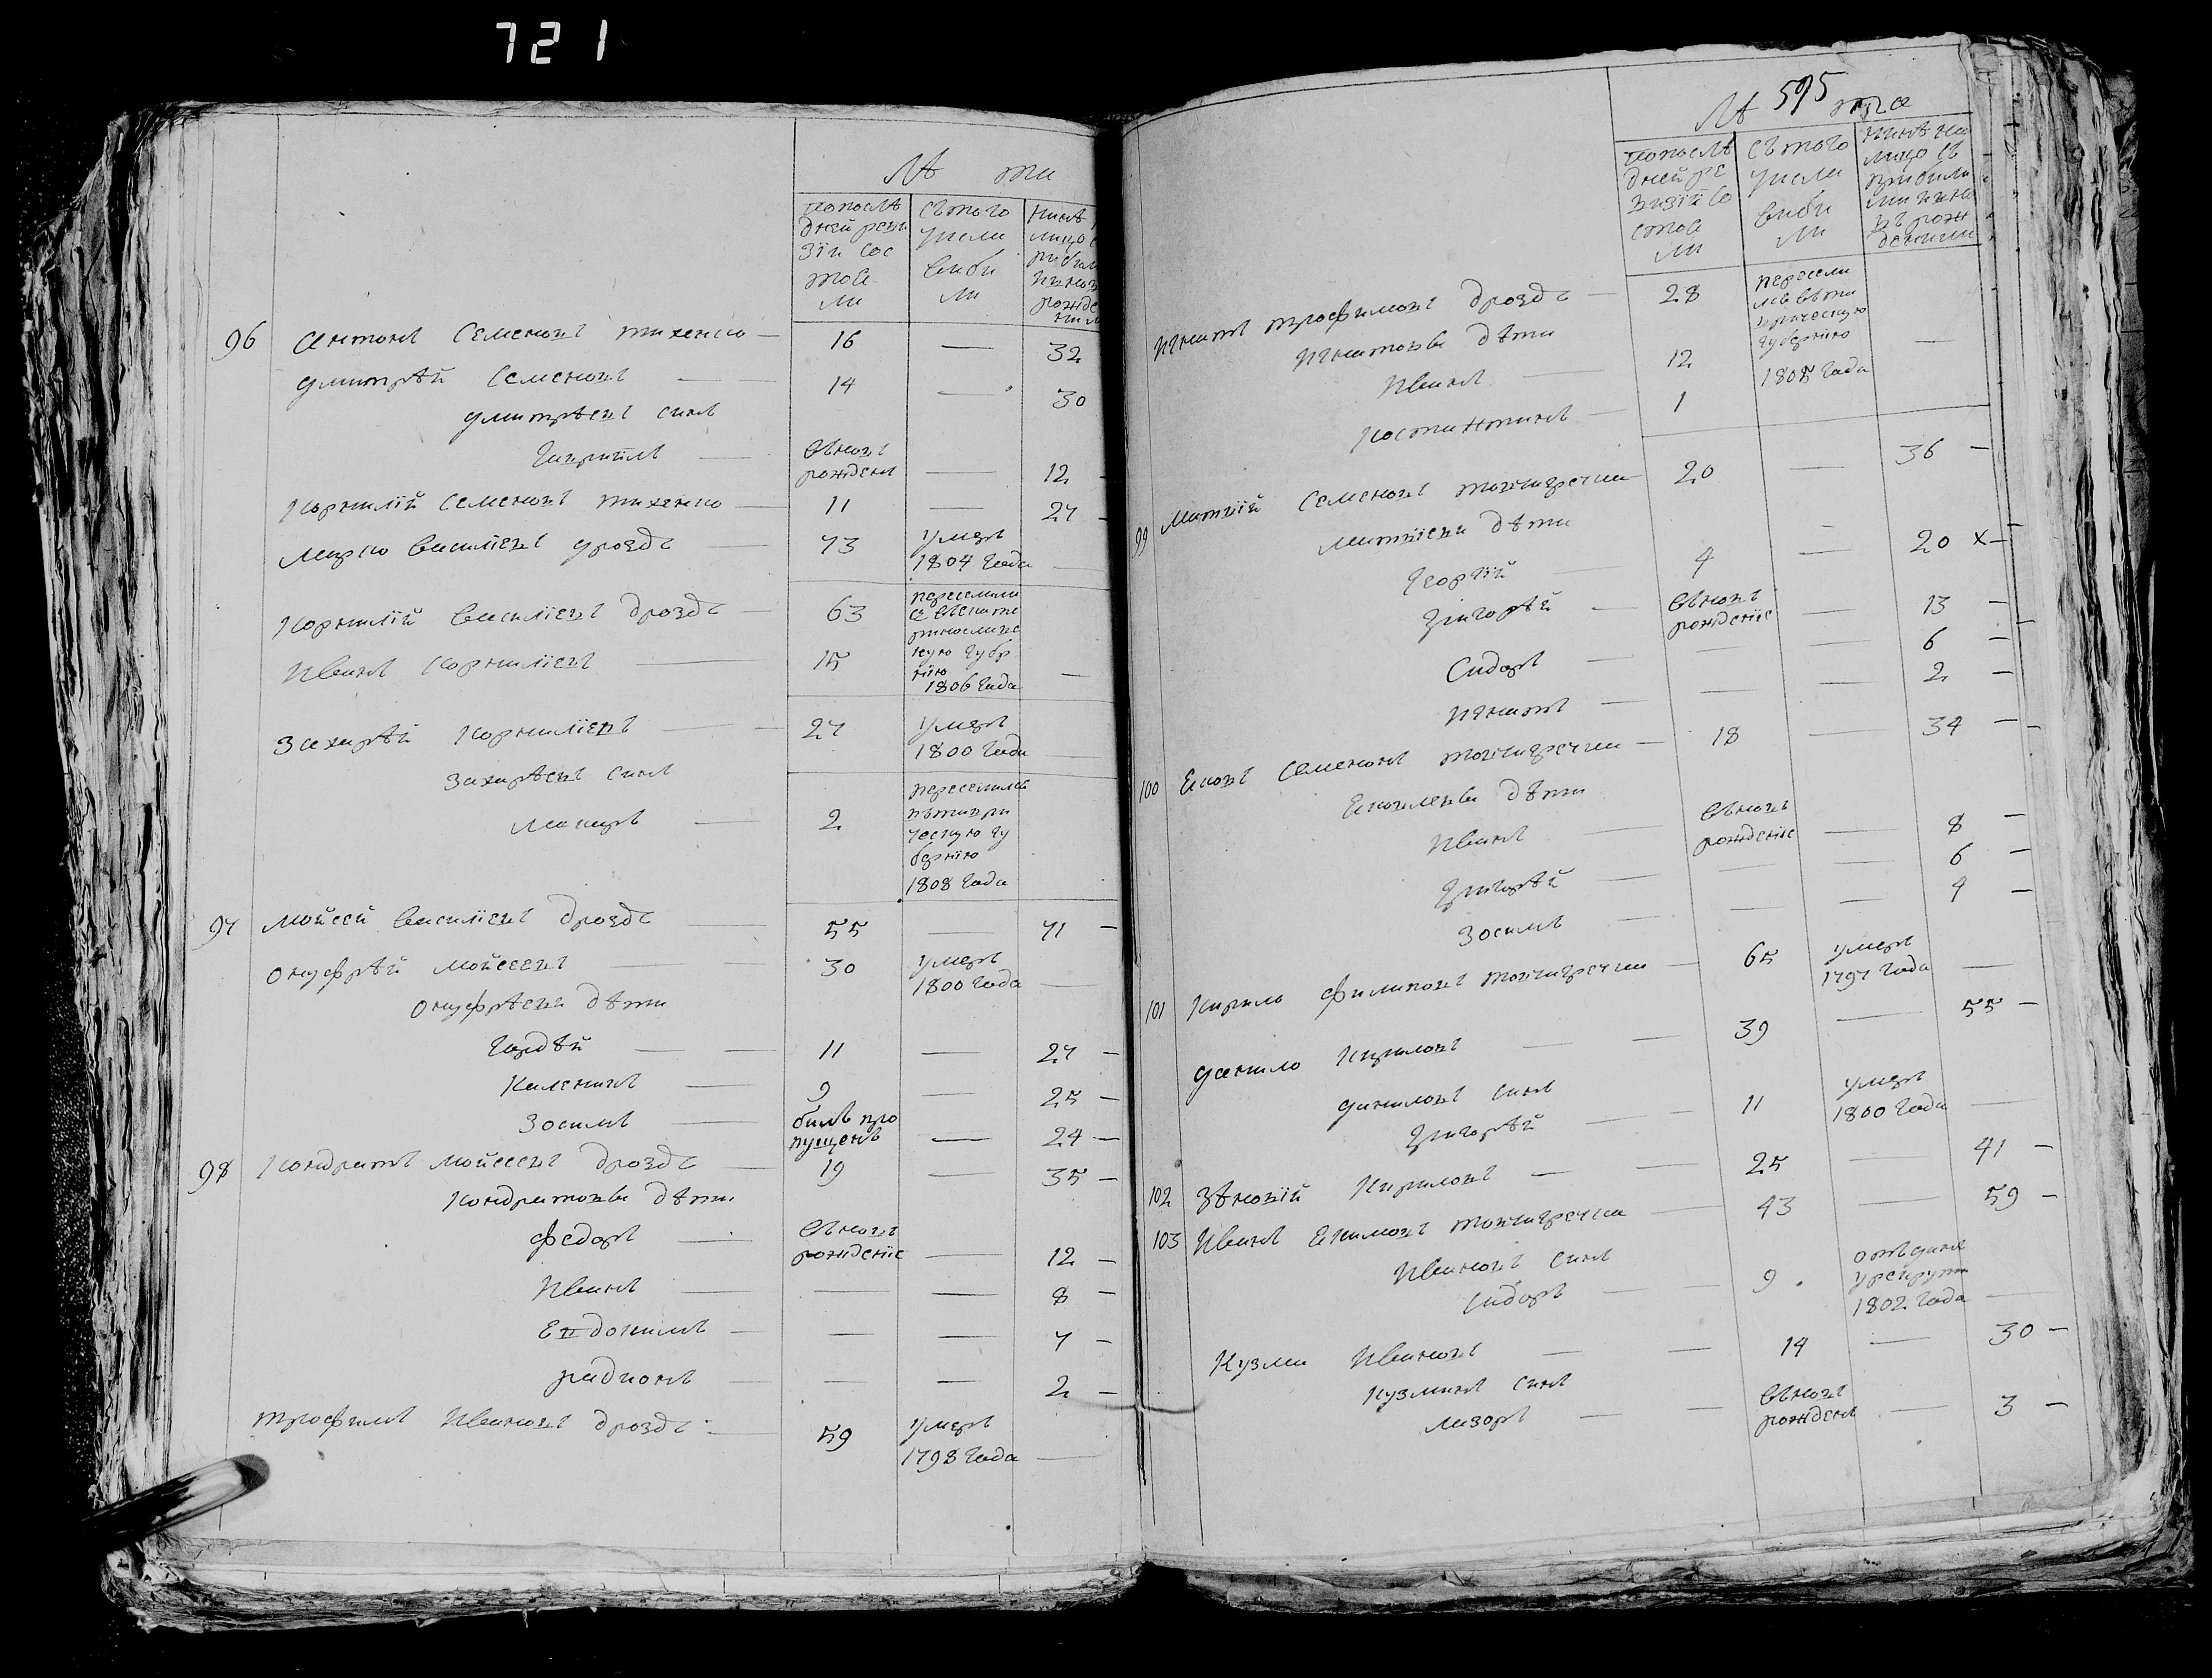 721
Лѣ та
попослѣ
дней реви
зіи сос
тоя
ли
съ того
числа
выбы
ли
нынѣ
лицо
96 Антонъ Семеновъ тихенко — 16 — 32
Дмитрѣй Семеновъ — 14 — 30
Дмитрѣевъ сынъ
Гаврыилъ — вновь
рожденъ — 12 —
Корнилїй Семеновъ тихенко — 11 — 27 —
Марко Василїевъ дроздъ — 73 умеръ
1804 года —
Корнилїй Василїевъ дроздъ — 63
Иванъ Корнилїевъ — 15
1806 года —
Захарѣй Корнилїевъ — 27 умеръ
1800 года
Захарѣевъ сынъ
Макаръ — 2 переселилсь
въ таври
ческую гу
бернїю
1808 года
97 Мойсей Василїевъ дроздъ — 55 — 71 —
Онуфрѣй Мойсеевъ — 30 умеръ
1800 года —
Онуфрѣеви дѣти
Гордѣй — 11 — 27 —
Каленикъ — 9 — 25 —
Зосимъ — былъ про
пущенъ — 24 —
98 Кондратъ Мойсеевъ дроздъ — 19 — 35 —
Кондратовы дѣти
Федоръ — вновь
рожденїе — 12 —
Иванъ — — — 8 —
Евдокимъ — — — 7 —
радионъ — — — 2 —
трофимъ Ивановъ дроздъ — 59 умеръ
1798 года —
595
Лѣ та
попослѣ
дней ре
визїи со
стоя
ли
съ того
числа
выбы
ли
нынѣ на
лицо съ
прибыли
ми и вно
въ рож
денными
Игнатъ трофимовъ дроздъ — 28 пересели
лсь въ та
врическую
губернїю
1805 года —
Игнатовы дѣти
Иванъ — 12
Костантинъ — 1
99 Матвїй Семеновъ — 20 — 36 —
Матвїеви дѣти
Георгїй — 4 — 20 x —
Григорѣй — вновь
рожденїе — 13 —
Сидоръ — — — 6 —
Игнатъ — — — 2 —
100 Семеновъ — 18 — 34 —
дѣти
Иванъ — вновь
рожденїе — 8 —
Григорѣй — — — 6 —
Зосимъ — — — 4 —
101 Кирило Филиповъ — 65 умеръ
1797 года —
Данило Кириловъ — 39 — 55 —
Даниловъ сынъ
Григорѣй — 11 умеръ
1800 года —
102 Зѣновїй Кириловъ — 25 — 41 —
103 Иванъ Екимовъ — 43 — 59 —
Ивановъ сынъ
Сидоръ — 9
1802 года —
Кузма Ивановъ — 14 — 30 —
Кузминъ сынъ
Лазоръ — вновь
рожденъ — 3 —